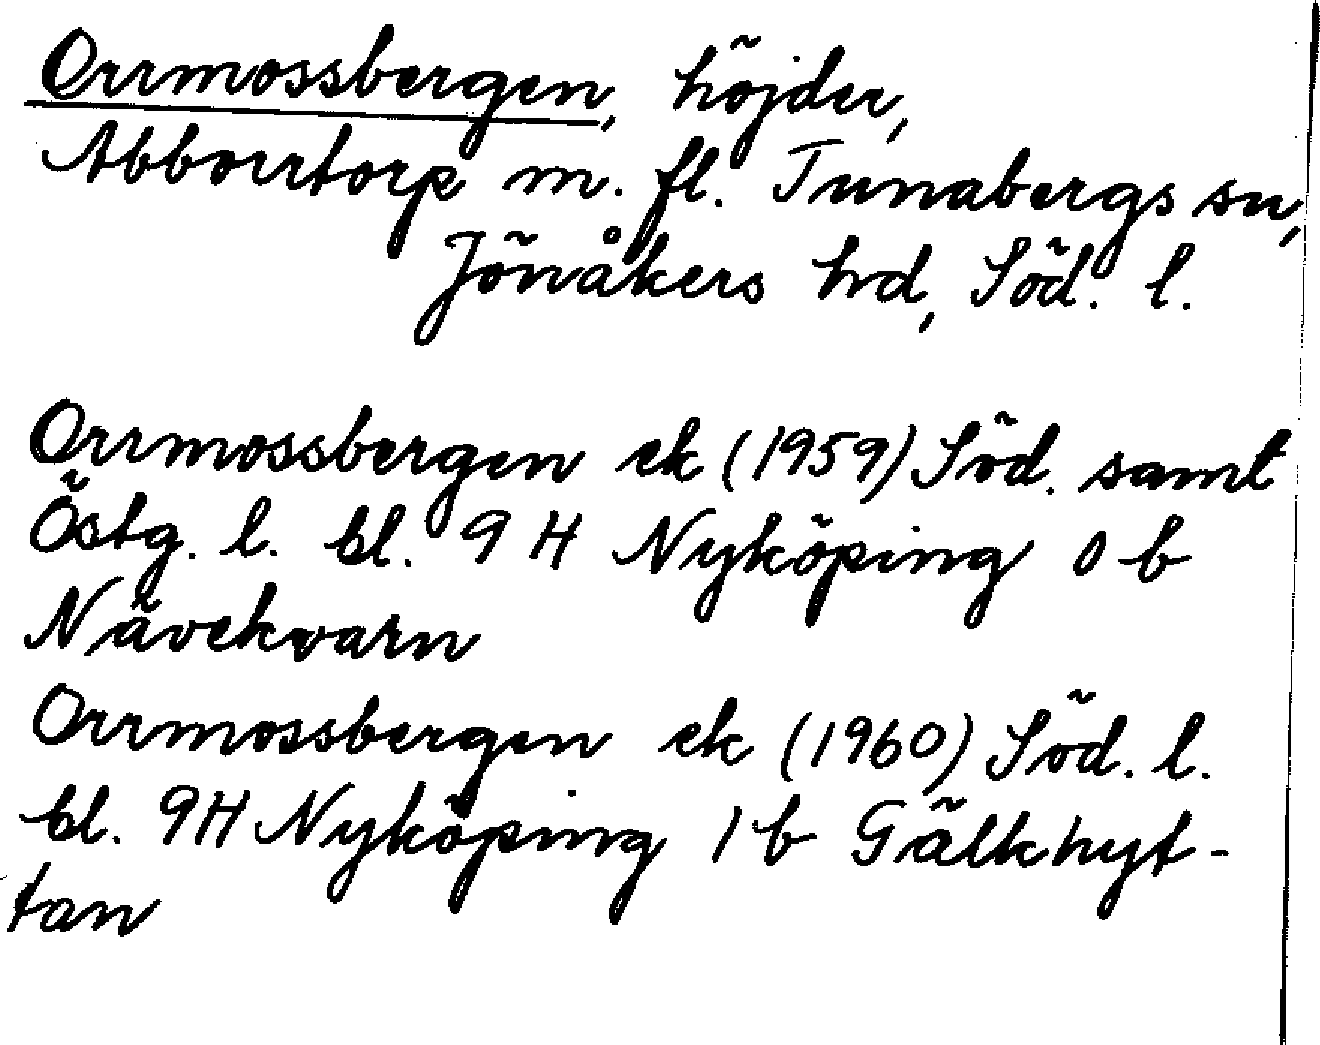 Orrmossbergen, höjder,
Abborrtorp m. fl. Tunabergs sn,
Jönåkers hd, Söd. l.
Orrmossbergen ek (1959) Söd. samt
Östg. l. bl. 9 H Nyköping 0 b
Nävekvarn
Orrmossbergen ek (1960) Söd. l.
bl. 9H Nyköping 1 b Gälkhyt-
tan